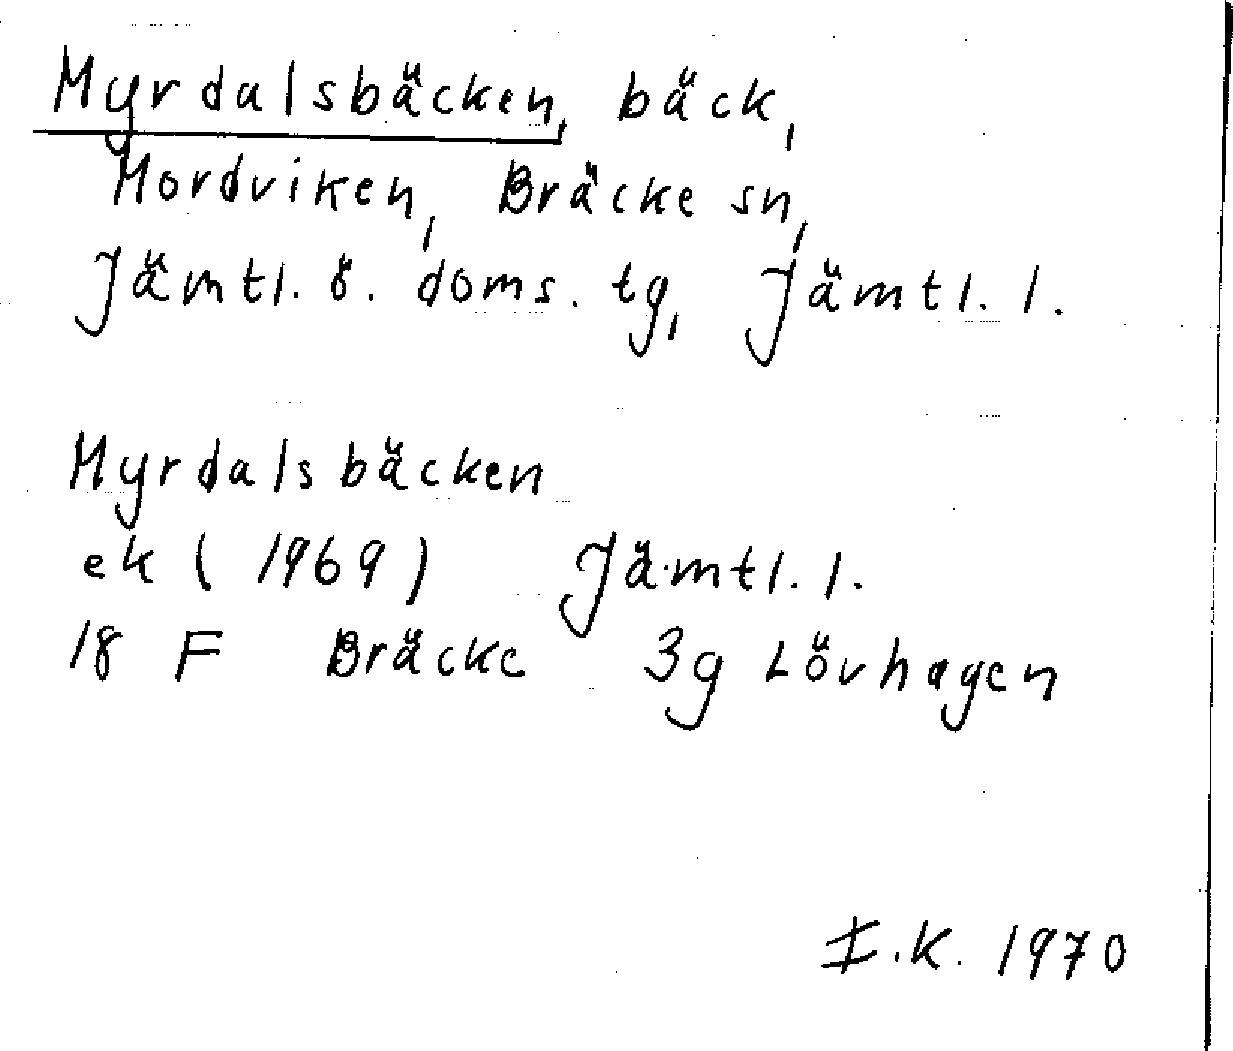 Myrdalsbäcken, bäck,
Mordviken, Bräcke sn,
Jämtl. ö. doms. tg, Jämtl. l.
Myrdalsbäcken
ek (1969) Jämtl. l.
18 F Bräcke 3g Lövhagen
I.K. 1970